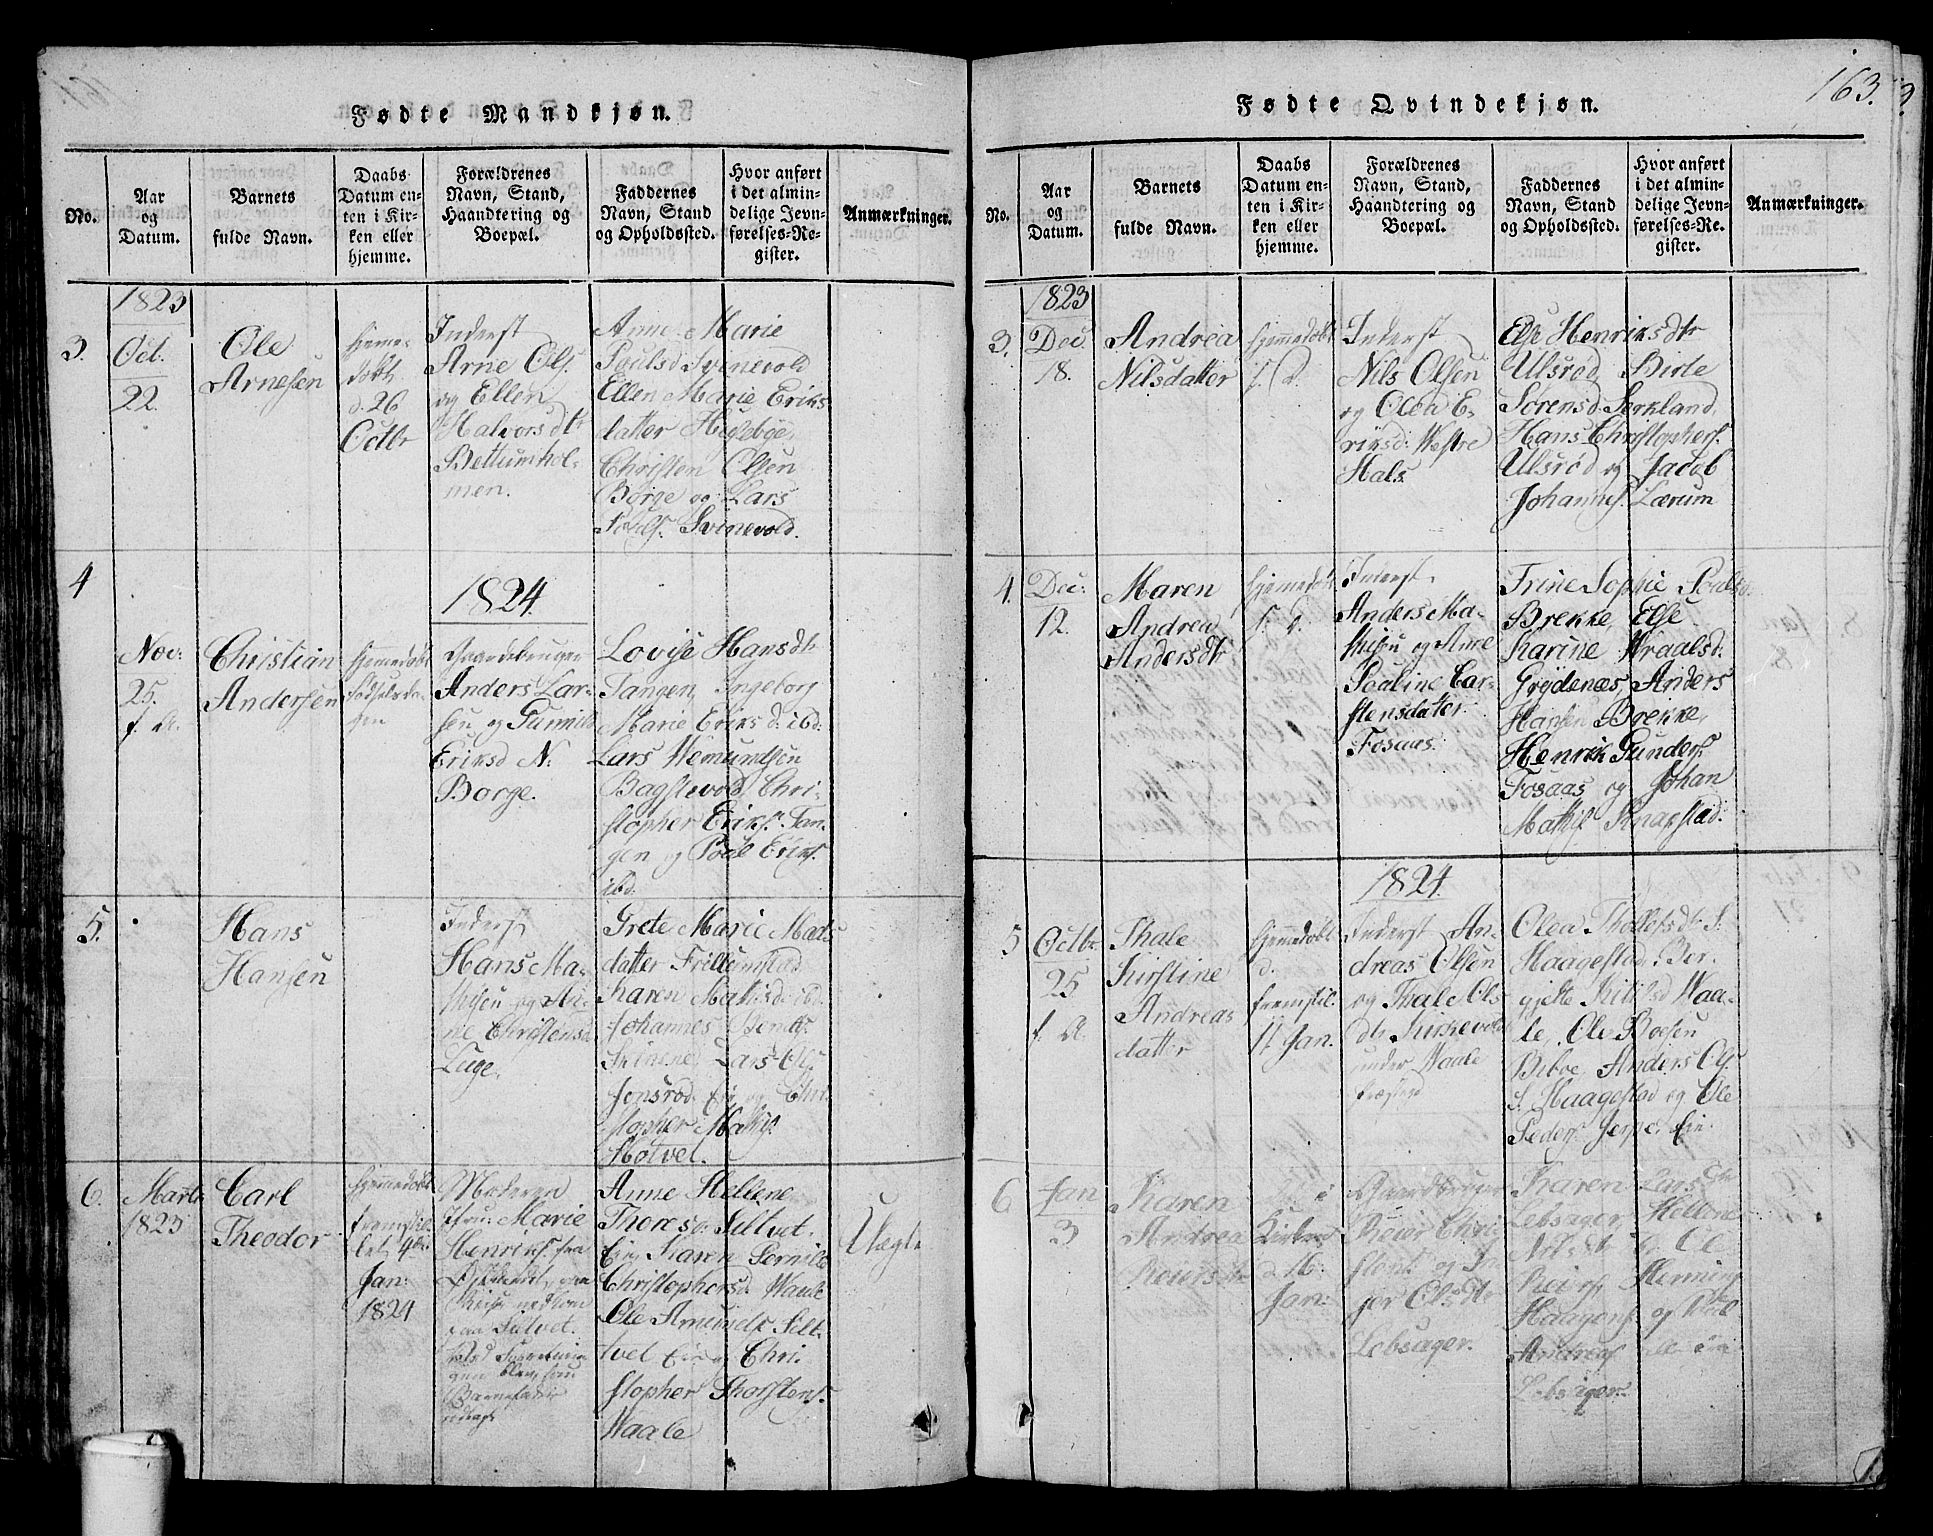 163.
Fødte Mandkjøn.
No.
Aar
og
Datum.
Barnets
fulde Navn.
Daabs
Datum en-
ten i Kir-
ken eller
hjemme.
Forældrenes
Navn, Stand,
Haandtering og
Boepæl.
Faddernes
Navn, Stand
og Opholdssted.
Hvor anført
i det almin-
delige Jevn-
førelses-Re-
gister.
Anmærkninger.
3.
1823
Oct.
22.
Ole
Arnesen
hjeme-
døbt
d. 26
Octbr
Inderst
Arne Ols.
og Ellen
Halvorsdtr
Bettumhol-
men.
Anne Marie
Poulsd Svinevold
Ellen Marie Eriks
datter
Christen Olsen
Borge og Lars
Pouls. Svinevold.
4
Nov:
25.
f. A.
Christian
Andersen
hjemmedøbt
1824
Gaardbruger
Anders Lar-
sen og Gunnild
Eriksd N.
Borge.
Lovise Hansdtr
Tangen, Ingeborg
Marie Eriksd: ibd:
Lars
Chri-
stopher Eriks. Tan-
gen og Poul Eriks.
ibd.
5.
Hans
Hansen
Inderst
Hans Ma-
thisen og An-
ne Christensd
Luge.
Grete Marie Mads
datter
Karen Mathisd: ibd.
Johannes Bendts.
Lars Ols.
Jonsrød Eie og Chri-
stopher Mathis.
Holvet.
6.
Marts
1823
Carl
Theodor
hjemmedøbt
fremstil-
let 4de
Jan:
1824
Moderen
Marie
Henriks. fra
paa
Reise
paa Siltvet.
Anne Hellene
Thoresd. Siltvet.
Eie Karen Pernille
Christophersd. Waale
Ole Amunds. Silt-
vet Eie og Chri-
stopher Thorstens.
Waale
Uægte
Fødte Qvindekjøn.
No.
Aar
og
Datum.
Barnets
fulde Navn.
Daabs
Datum en-
ten i Kir-
ken eller
hjemme.
Forældrenes
Navn, Stand,
Haandtering og
Boepæl.
Faddernes
Navn, Stand
og Opholdssted.
Hvor anført
i det almin-
delige Jevn-
førelses-Re-
gister.
Anmærkninger.
3.
1823
Dec.
18.
Andrea
Nilsdatter
hjemmedøbt
s. D.
Inderst
Nils Olsen
og Olea E-
riksd: Westre
Hals
Else Henriksdtr
Ulsrød, Birte
Sørensd. Serkland,
Hans Christophers.
Ulsrød og Jacob
Johannes. Lærum
4.
Dec:
12.
Maren
Andrea
Andersdtr
hjemmedøbt
s. D.
Inderst
Anders Ma-
thisen og Anne
Pouline Car-
stensdatter
Fosaas.
Trine Sophie Poulsd.
Brekke, Else
Karine Wraalsd.
Grydenæs, Anders
Hansen Brekke,
Henrik Gunders.
Fosaas og Johan
Mathis. Knapstad.
5
Octbr
25
f. A.
Thale
Kirstine
Andreas
datter
hjemmedøbt
d.
fremstil.
11 Jan.
1824
Inderst An-
dreas Olsen
og Thale Ols
dtr Kirkevold
under Waale
Præstegd
Olea Thollefsdtr S.
Haagestad, Ber-
gjitte Kitilsd Waa-
le, Ole Boesen
Biboe, Anders Ols.
S. Haagestad og Ole
Peders. Jerpe. Eie.
6
Jan
3
Karen
Andrea
Reiersdtr
i
Kirken
d. 16
Jan:
Gaardbruger
Reier Chri-
stens. og In-
ger Olsdtr
Lebsager.
Karen
Lebsager, Hellene
Nilsdtr ibd. Ole
Reiers. Henning
Haagens. og
Andreas
Lebsager.